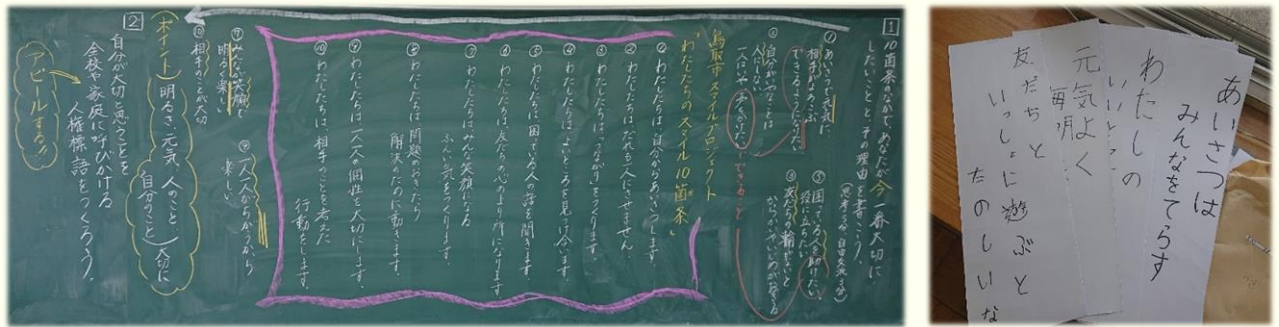 1 10箇条のなかで、あなたが今一番大切に
したいこと、その理由を書こう。
① あいさつで元気に
相手がよろこぶ
② 自分がいやなことは
人にしない
⑤ 困っている人を助けたい
役に立ちたい
鳥取市スマイルプロジェクト
"わたしたちのスマイル10箇条"
① わたしたちは、自分からあいさつします
② わたしたちは、だれも一人にさせません。
③ わたしたちは、つながりをつくります。
④ わたしたちは、よいところを見つけ合います。
⑤ わたしたちは、困っている人の話を聞きます
⑥ わたしたちは、友だちの心のより所になります
⑦ わたしたちは、みんな笑顔になる
ふんい気をつくります
⑧ わたしたちは、問題がおきたら
解決のために動きます。
⑨ わたしたちは、一人一人の個性を大切にします。
⑩ わたしたちは、相手のことを考えた
行動をします。
⑦ みんな笑顔で
明るく楽しい
⑩ 相手のことが大切
⑨ 一人一人からちがうから
楽しい
(ポイント) 明るさ、元気、人のこと、大切に
自分のこと
2 自分が大切と思うことを
全校や家庭に呼びかける
人権標語をつくろう。
アピールする!!
あいさつは
みんなをてらす
わたしの
いいとこ
元気よく
毎朝
友だちと
いっしょに遊ぶと
たのしいな